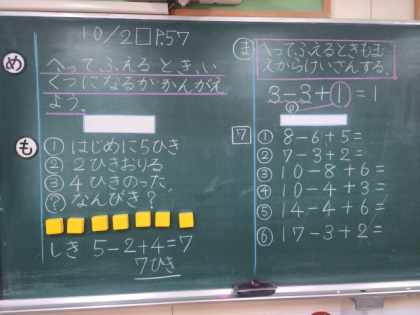 10/2□P.57
め
へって、ふえるとき、い
くつになるかかんがえ
よう。
も
①はじめに5ひき
②2ひきおりる
③4ひきのった。
?なんびき?
しき 5-2+4=7
7ひき
ま
へって、ふえるときもま
えからけいさんする。
3-3+1=1
0
7
①8-6+5=
②7-3+2=
③10-8+6=
④10-4+3=
⑤14-4+6=
⑥17-3+2=